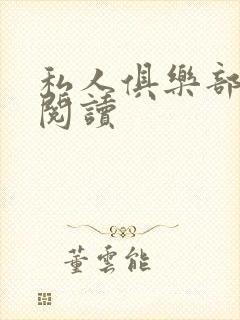 私人俱樂部
閱讀
董雲能